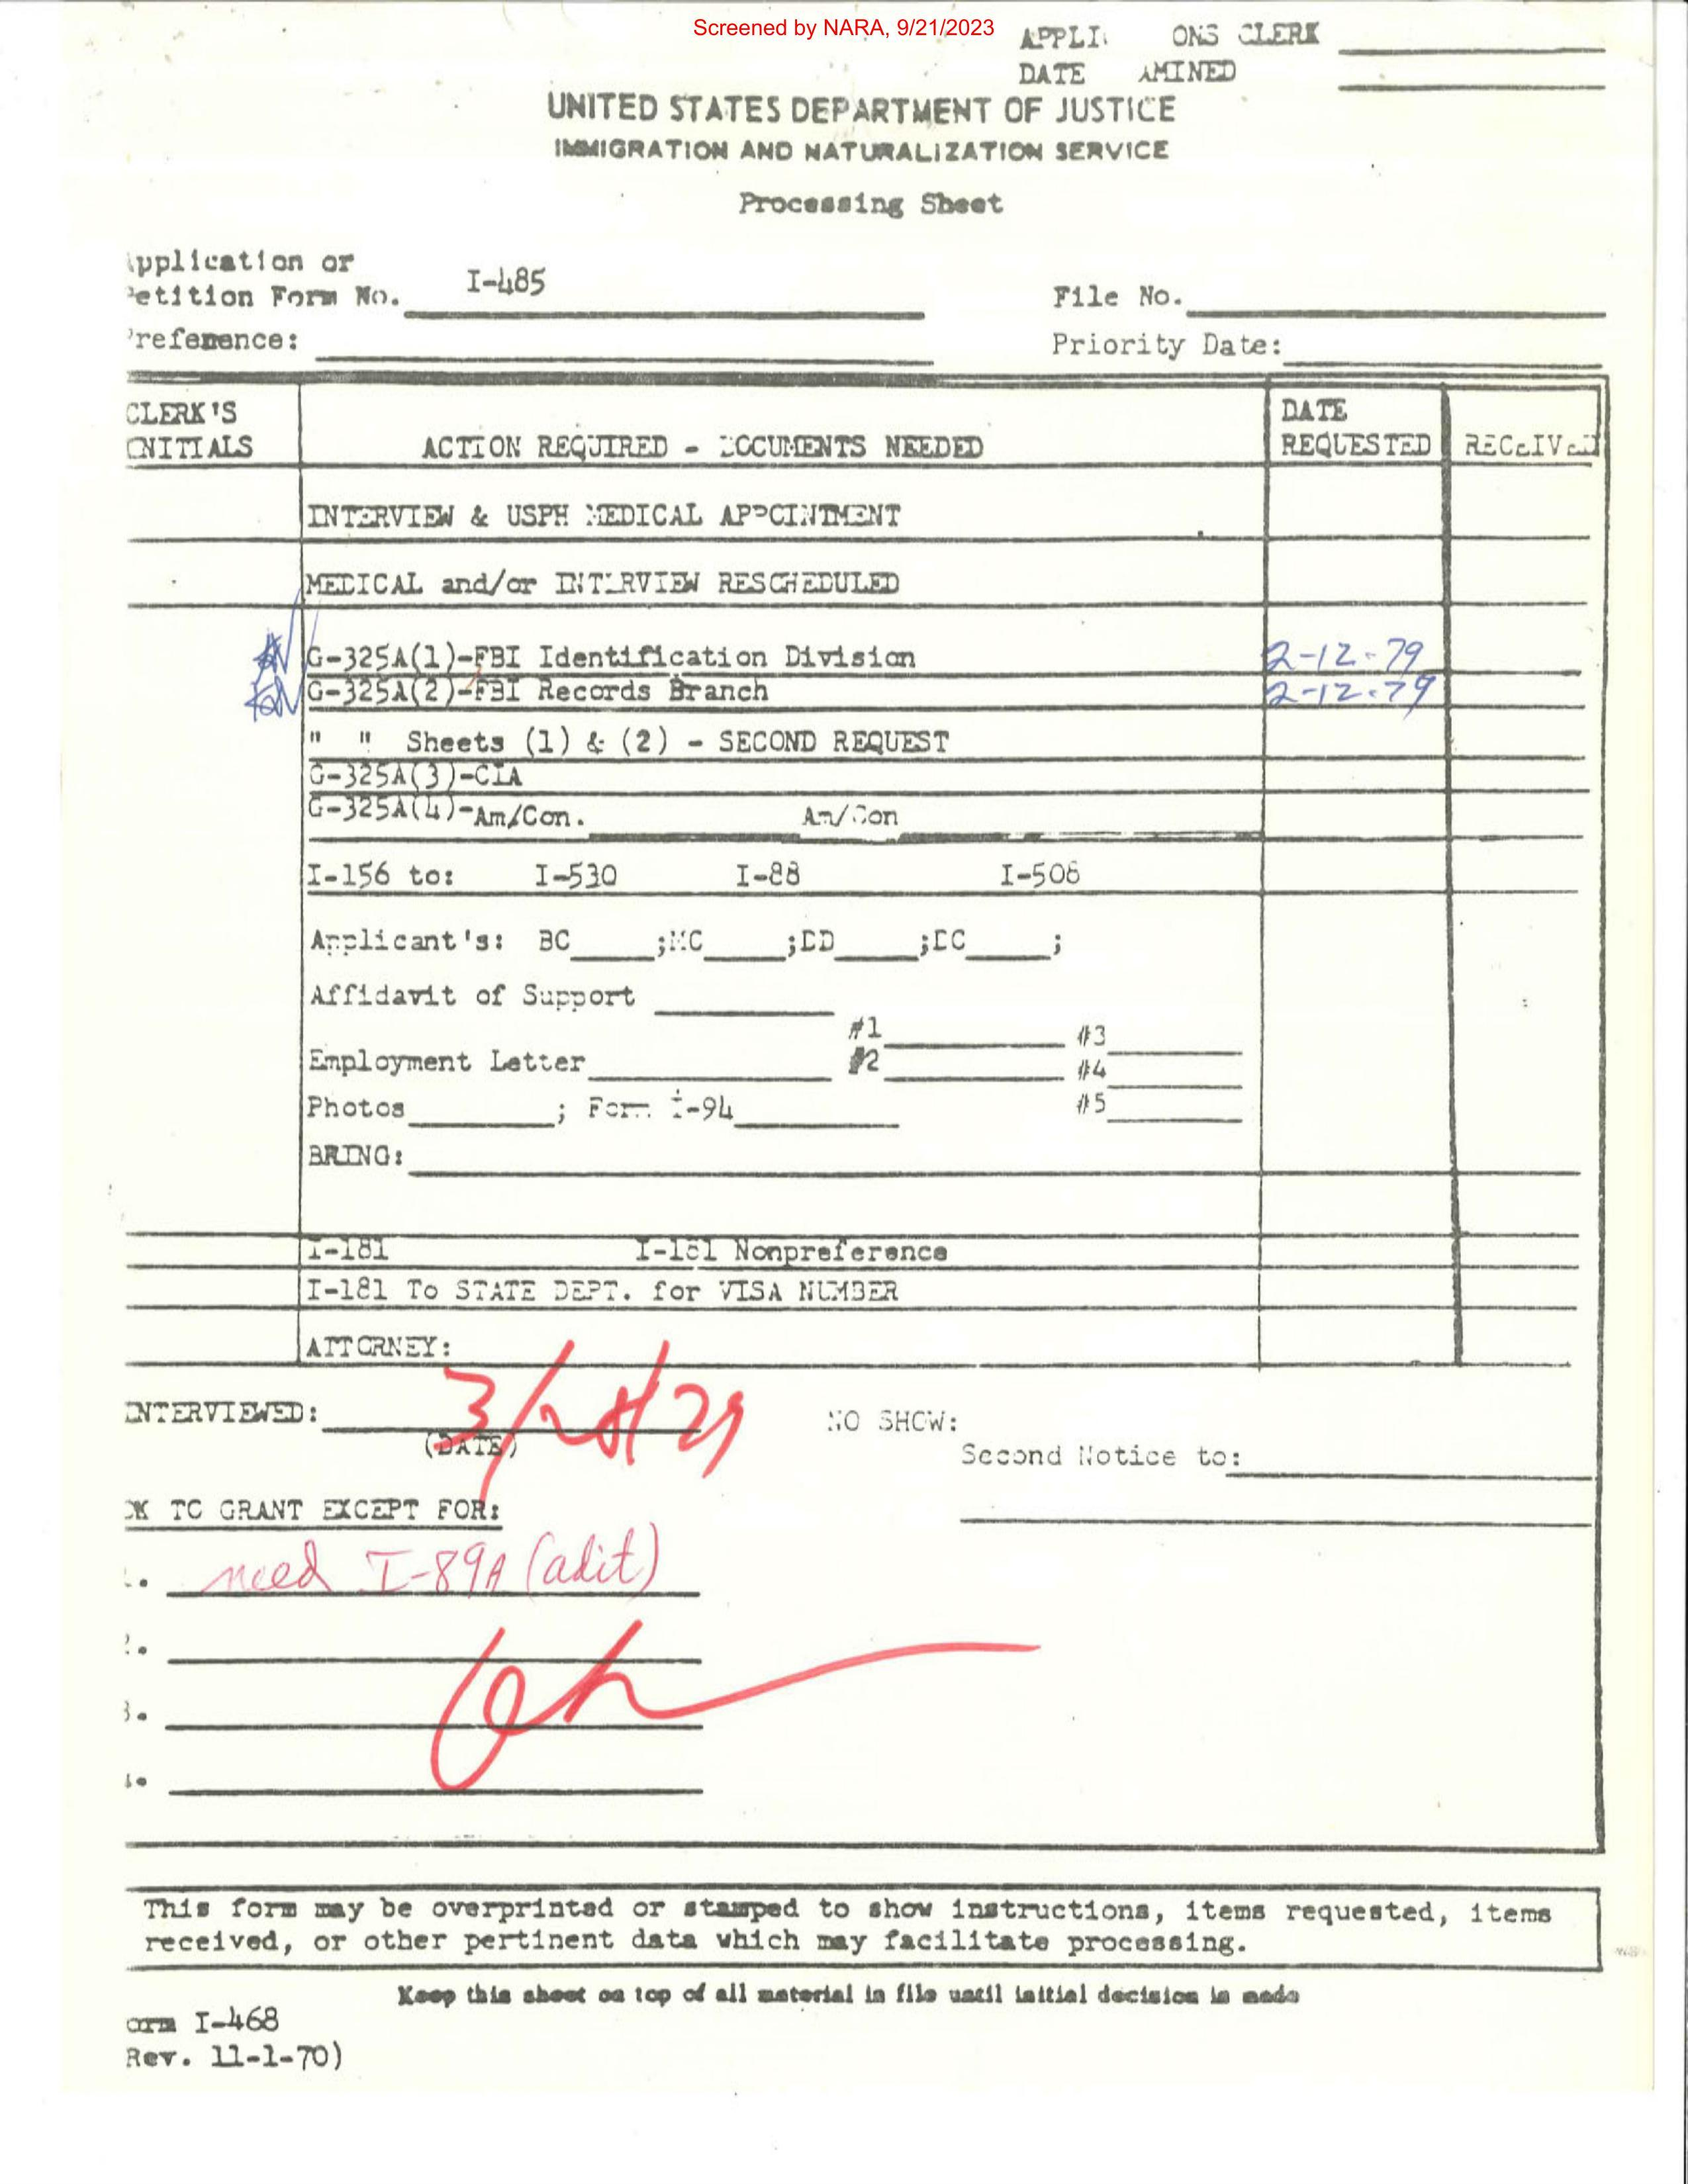 Screened by NARA, 9/21/2023
APPLI ONS CLERK
DATE AMINED
UNITED STATES DEPARTMENT OF JUSTICE
IMMIGRATION AND NATURALIZATION SERVICE
Processing Sheet
pplication or
etition Form No. I-485
File No.
reference:
Priority Date:
CLERK'S INITIALS
ACTION REQUIRED - DOCUMENTS NEEDED
DATE REQUESTED
RECEIVED
INTERVIEW & USPH MEDICAL APPOINTMENT
MEDICAL and/or INTERVIEW RESCHEDULED
G-325A(1)-FBI Identification Division 2-12-79
G-325A(2)-FBI Records Branch 2-12-79
" " Sheets (1) & (2) - SECOND REQUEST
G-325A(3)-CIA
G-325A(4)-Am/Con. Am/Con
I-156 to: I-530 I-88 I-506
Applicant's: BC ;MC ;DD ;DC ;
Affidavit of Support
#1 #3
Employment Letter #2 #4
Photos ; Form I-94 #5
BRING:
I-181 I-181 Nonpreference
I-181 To STATE DEPT. for VISA NUMBER
ATTORNEY:
INTERVIEWED:
NO SHOW:
(DATE)
Second Notice to:
OK TO GRANT EXCEPT FOR:
1. need I-89A (adit)
2.
3.
4.
This form may be overprinted or stamped to show instructions, items requested, items
received, or other pertinent data which may facilitate processing.
Keep this sheet on top of all material in file until initial decision is made
orm I-468
Rev. 11-1-70)